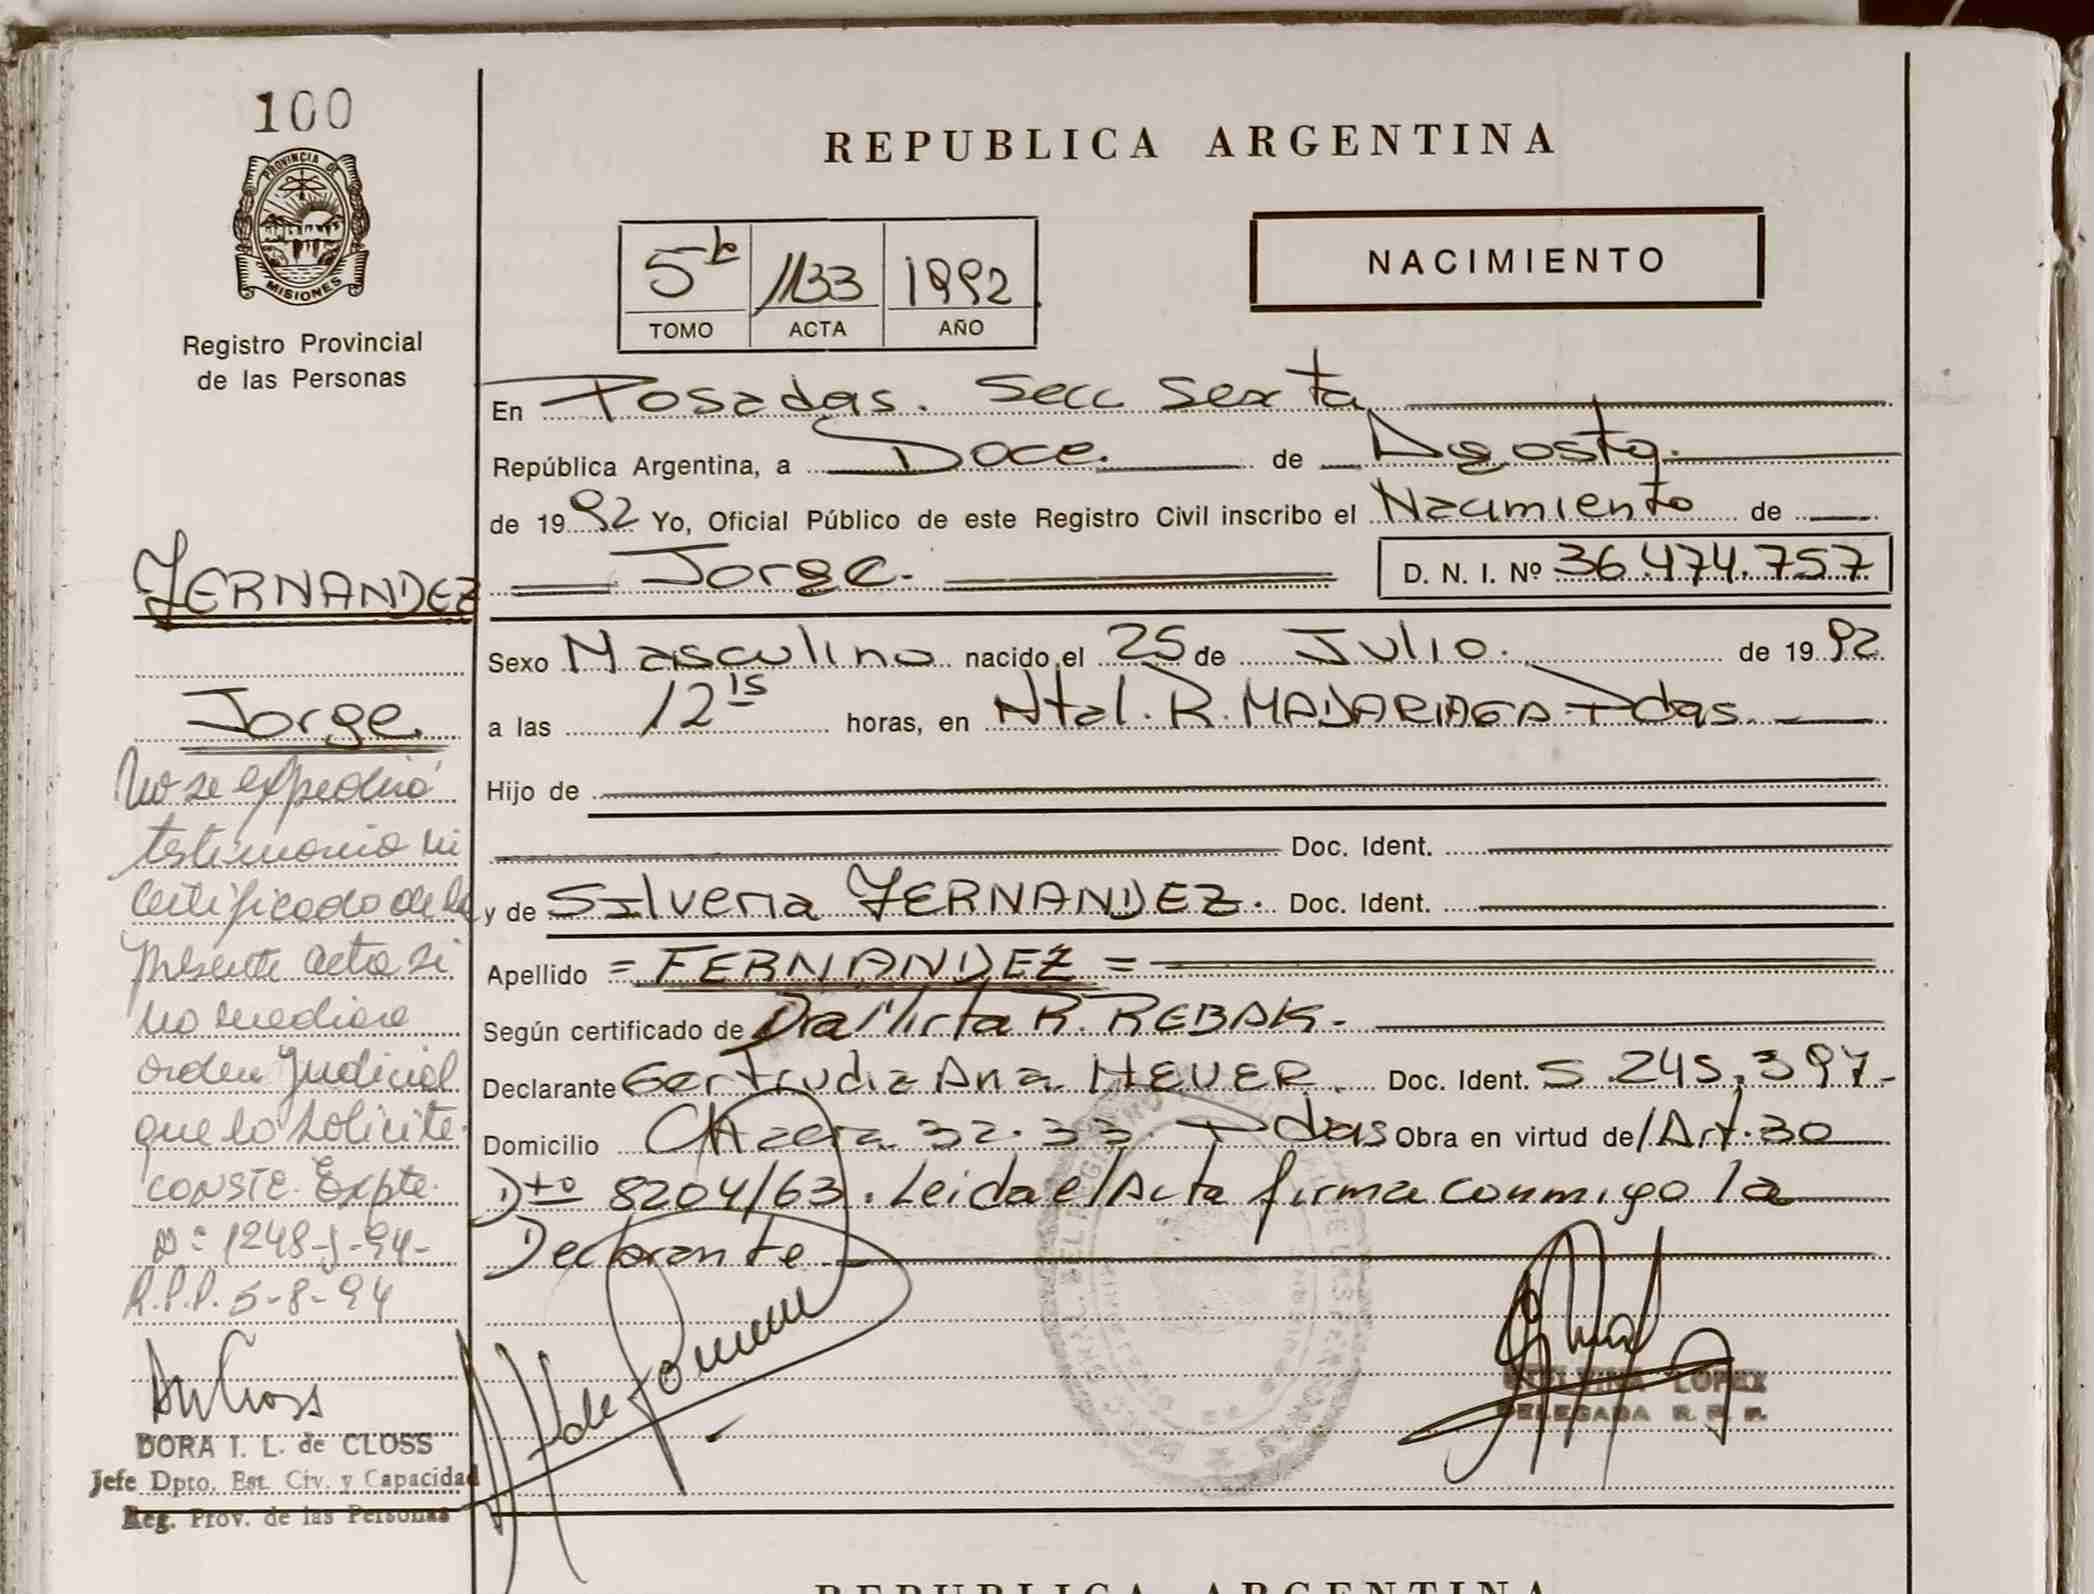 100
PROVINCIA DE
MISIONES
Registro Provincial
de las Personas
FERNANDEZ
Jorge.
No se expedirá
testimonio ni
certificado de la
presente acta si
no mediare
orden Judicial
que lo solicite.
CONSTE. Expte.
Nº 1248-J-94-
R.P.P. 5-8-94
DORA I. L. de CLOSS
Jefe Dpto. Est. Civ. y Capacidad
Reg. Prov. de las Personas
REPUBLICA ARGENTINA
5tº 1133 1992
TOMO ACTA AÑO
NACIMIENTO
En Posadas. Secc Sexta
República Argentina, a Doce. de Agosto.
de 1992 Yo, Oficial Público de este Registro Civil inscribo el Nacimiento de
Jorge. D. N. I. Nº 36.474.757
Sexo Masculino nacido el 25 de Julio. de 1992
a las 12 15 horas, en Htal. R. MADARIAGA Pdas.
Hijo de
Doc. Ident.
y de Silveria FERNANDEZ. Doc. Ident.
Apellido = FERNANDEZ =
Según certificado de Dra Mirta R. REBAK.
Declarante Gertrudiz Ana HEUER. Doc. Ident. 5.245.397-
Domicilio Chacra 32-33. Pdas Obra en virtud de/Art.30
Dto 8204/63. Leida el Acta firma conmigo la
Declarante
LOPEZ
DELEGADA R. P. P.
REPUBLICA ARGENTINA